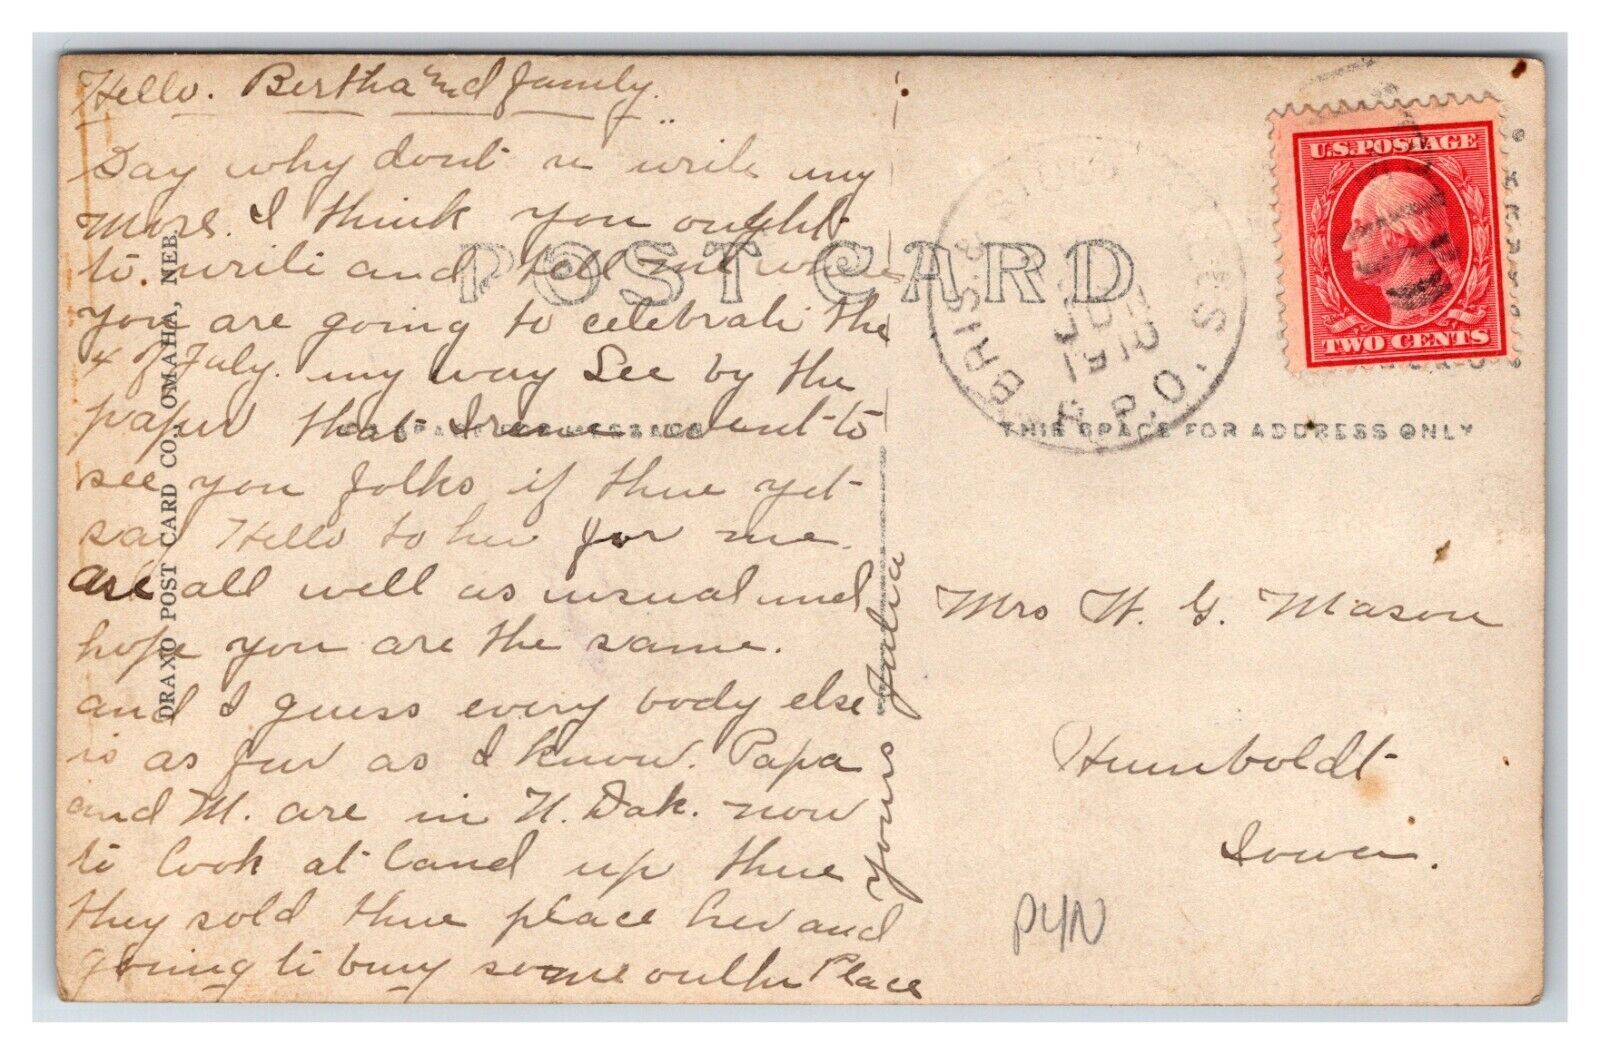 Hello. Bertha and family.
Say why dont u write my
more. I think you ought
to. write and tell me where
you are going to celebrate the
4 of July. my way See by the
paper that Irene went to
see you folks if thue yet
say Hello to her for me.
are all well as usual and
hope you are the same.
and I guess every body else
is as far as I know. Papa
and M. are in N. Dak. now
to look at land up thue
they sold thue place her and
going to buy some outher Place
Yours Julia
DRAXO POST CARD CO., OMAHA, NEB.
POST CARD
THIS SPACE FOR ADDRESS ONLY
BRIS
R.P.O.
1910
U.S. POSTAGE
TWO CENTS
Mrs W. G. Mason
Humboldt
Iowa.
P4N